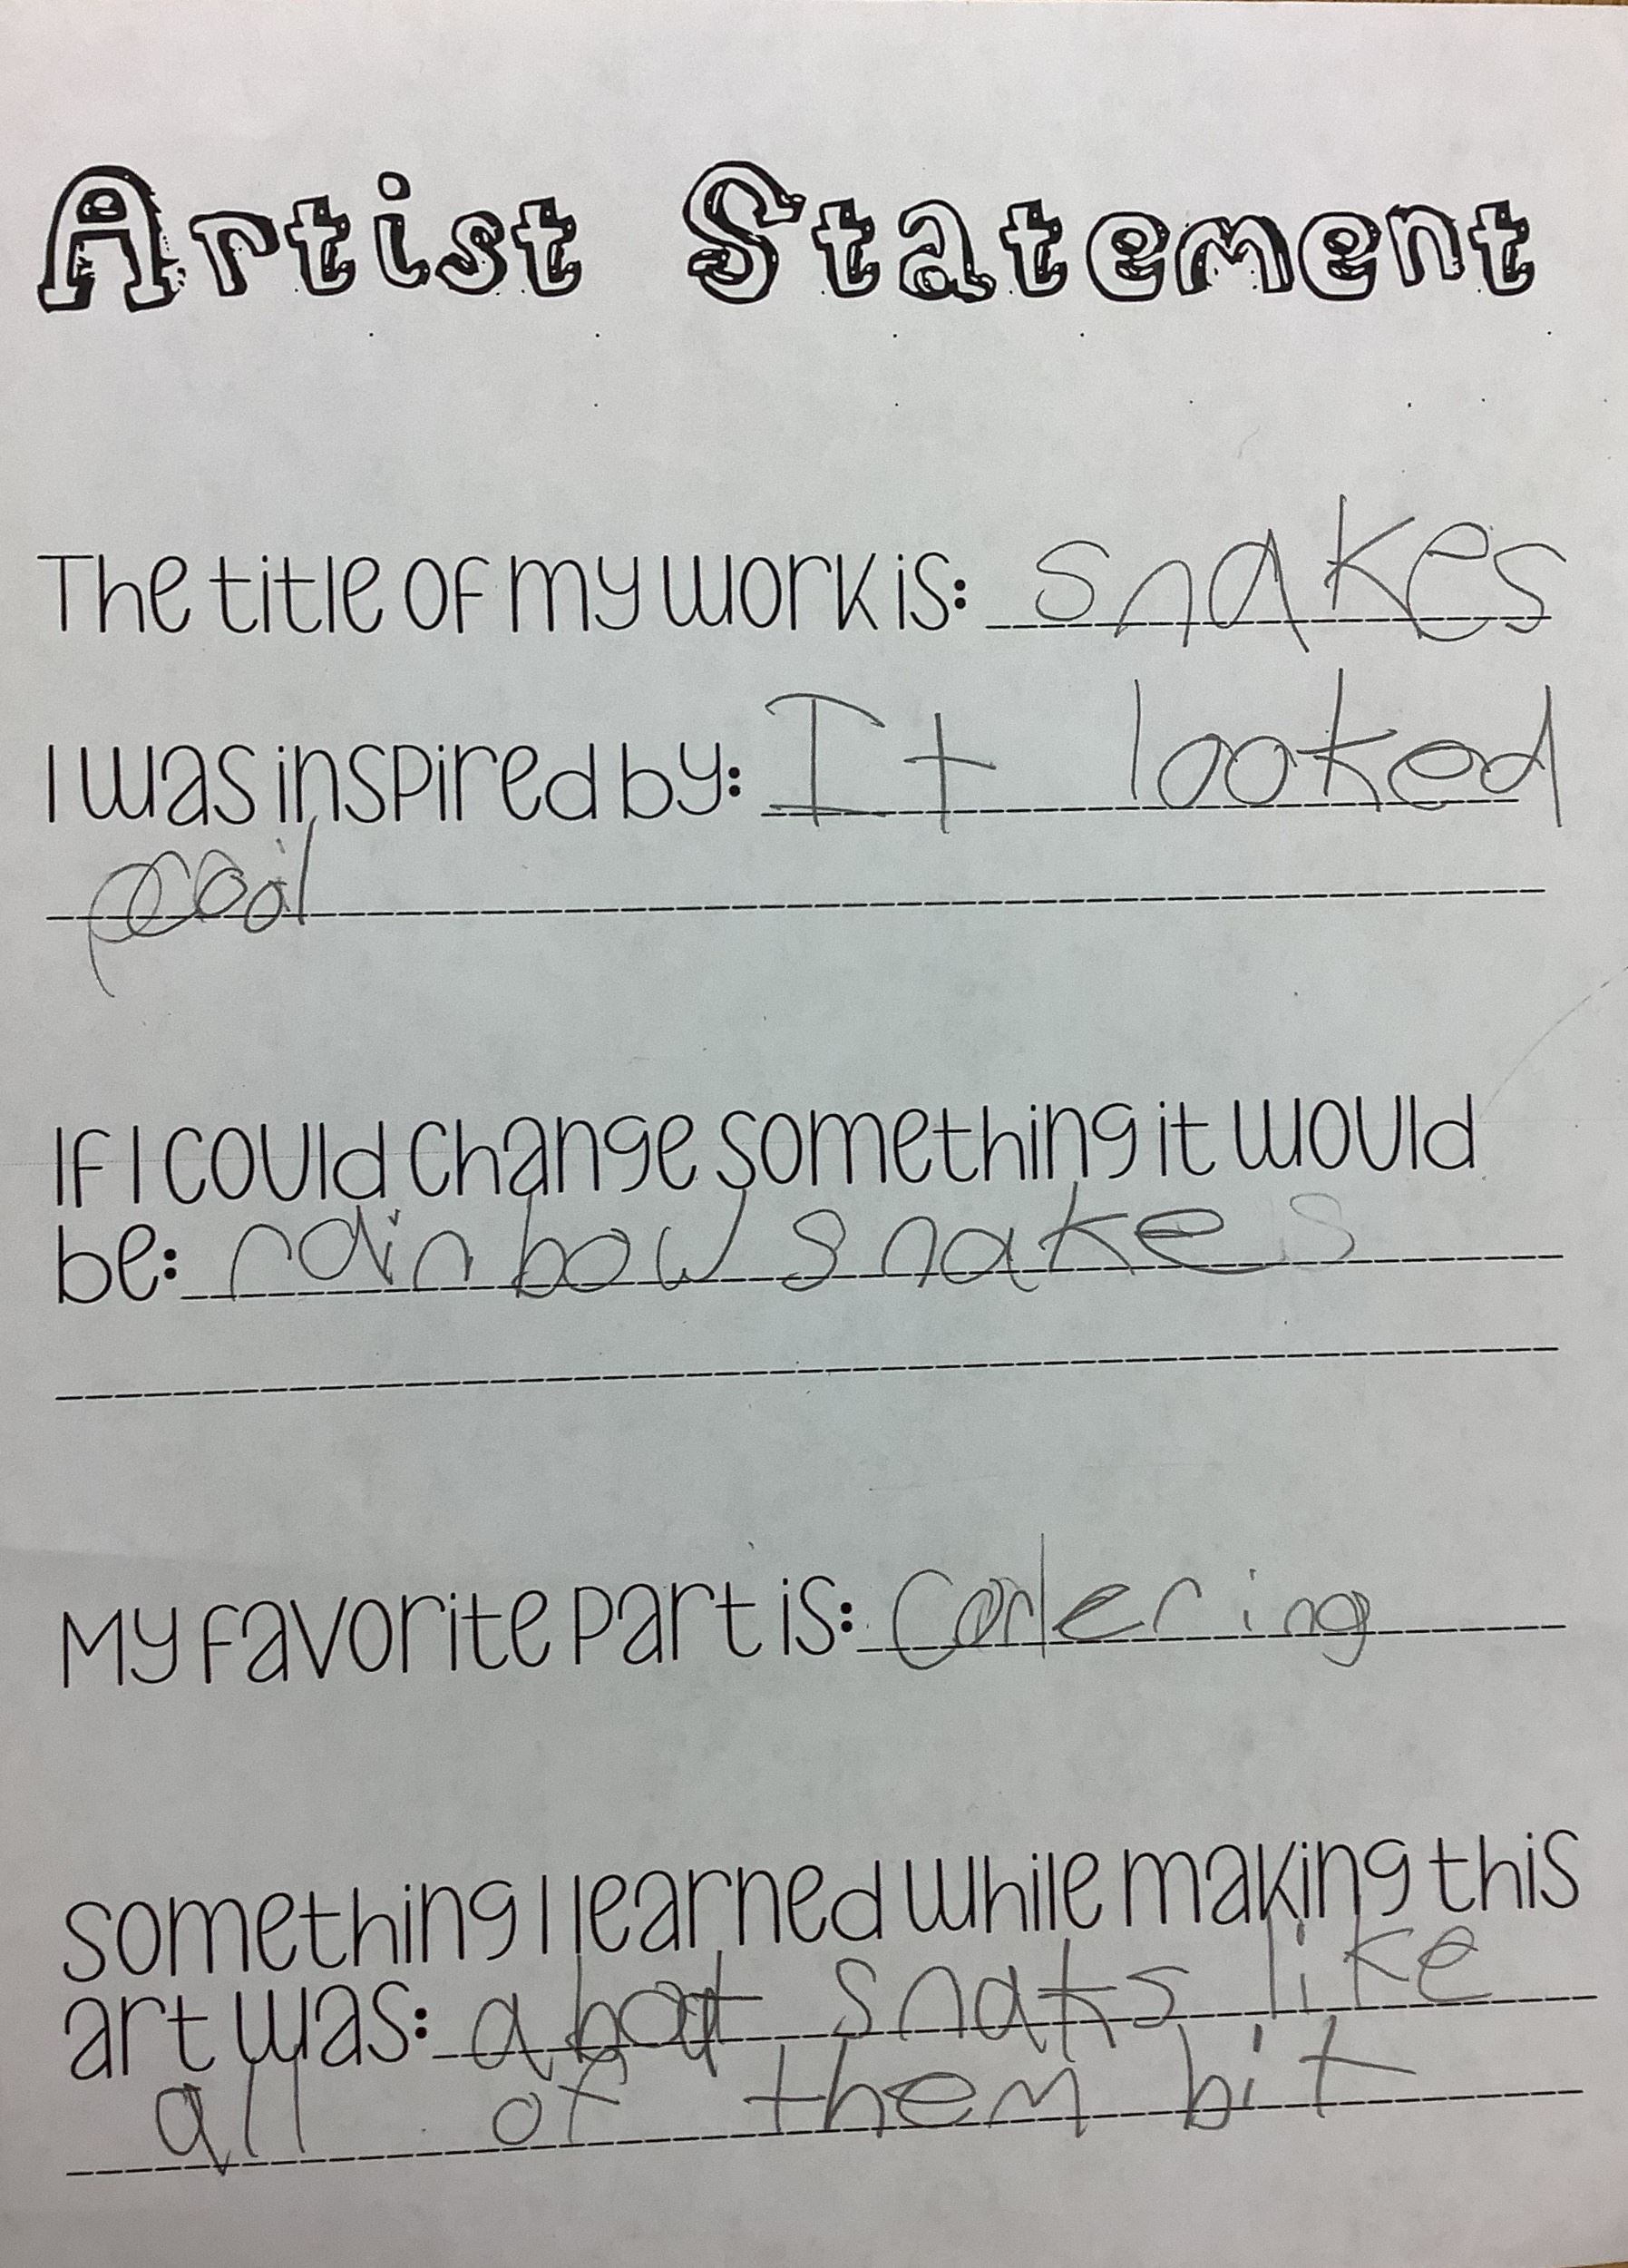 Artist Statement
The title of my work is: snakes
I was inspired by: It looked
cool
If I could change something it would
be: rainbow snakes
My favorite part is: Corlering
something I learned while making this
art was: abot snaks like
all of them bit